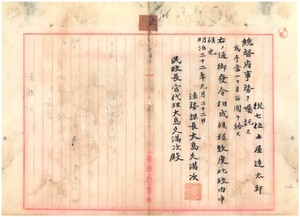 從七位土屋達太郎
總督府事務ヲ囑託ス
為手當一ヶ月百圓ヲ給ス
右ノ通御發令相成候樣致度此段内申
候也
明治三十二年九月二十二日
法務課長大島久滿次
民政長官代理大島久滿次殿